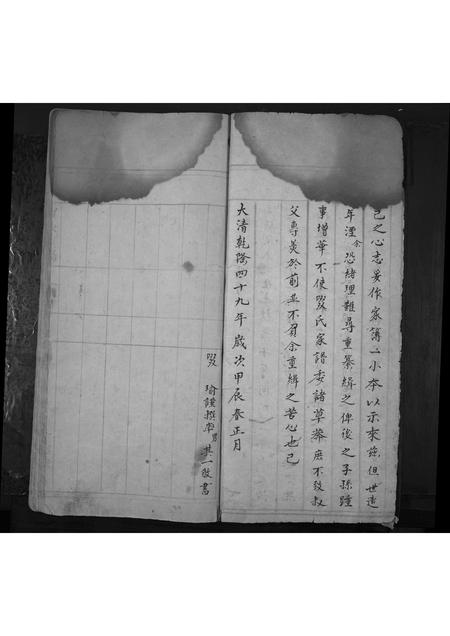 己之心志妥作家簿二小本以示來茲但世遠
年湮余恐緒理難尋重纂緝之俾後之子孫踵
事增華不使叕氏家譜委諸草莽庶不致叔
父專美於前並不負余重緝之苦心也已
大清乾隆四十九年歲次甲辰春正月
叕 瑜謹撰率男其一敬書